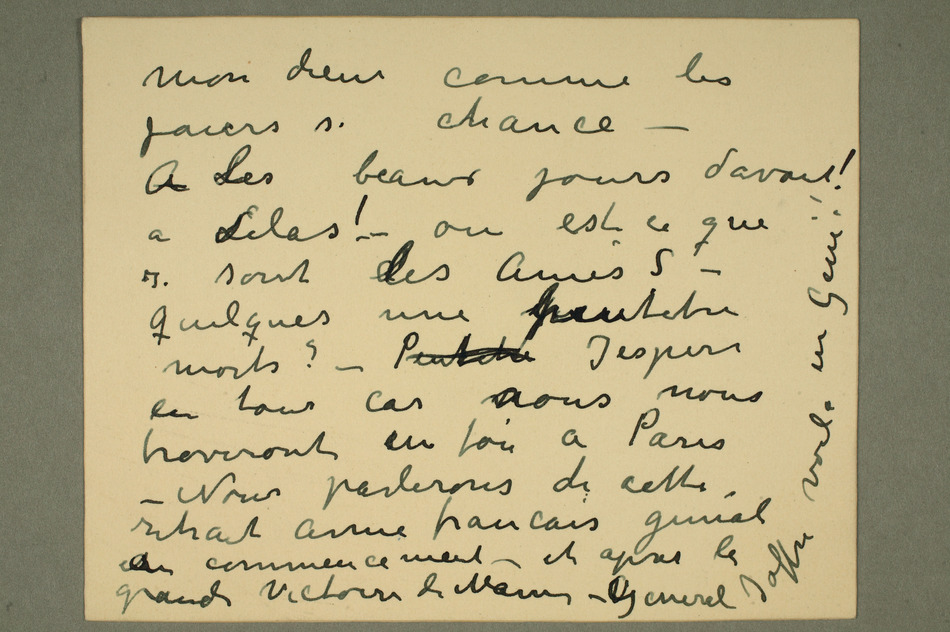 mon dieu comme les
joiers s. chance —
A Les beaux jours d'avant!
a Lilas! — ou est ce que
s. sont les Amies S —
quelques une peutetre
morts? — Peutetre Jesper
en tous cas nous nous
troveront un foi a Paris
— Nous parlerons de cette
retrait armé francais genial
au commencement — et apres la
grande Victoire de Marne — General
Joffre voila un Genie!!